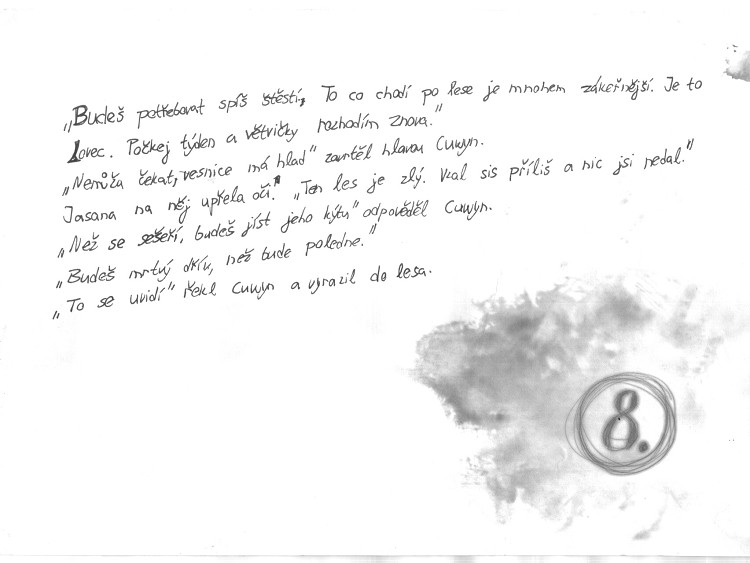 „Budeš potřebovat spíš štěstí, To co chodí po lese je mnohem zákeřnější. Je to
Lovec. Počkej týden a větvičky rozhodím znova."
„Nemůžu čekat, vesnice má hlad" zavrtěl hlavou Cuwyn.
Jasana na něj upřela oči. „Ten les je zlý. Vzal sis příliš a nic jsi nedal."
„Než se sešeří, budeš jíst jeho kýtu" odpověděl Cuwyn.
„Budeš mrtvý dřív, než bude poledne."
„To se uvidí" řekl Cuwyn a vyrazil do lesa.
8.